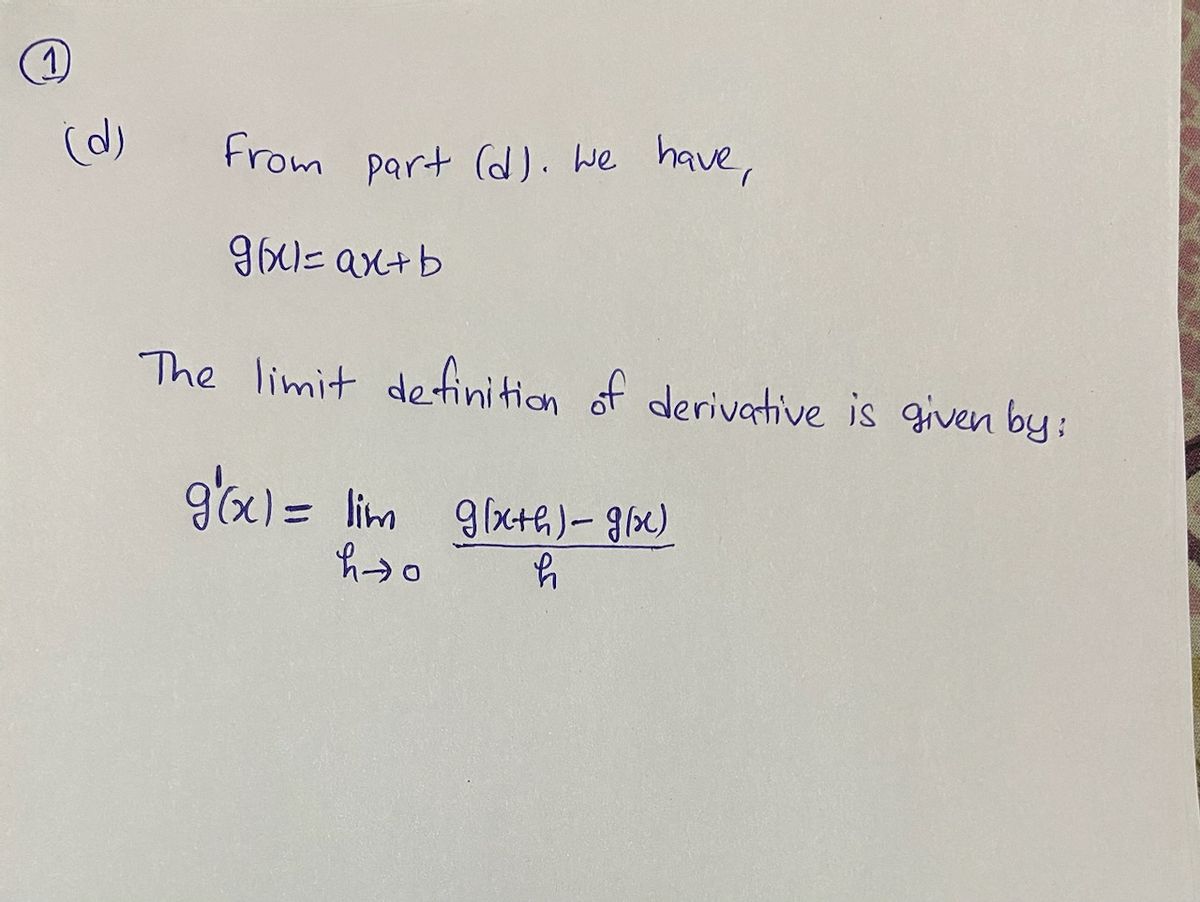 ①
(d) From part (d). We have,
g(x)= ax+b
The limit definition of derivative is given by:
g'(x) = lim g(x+h)-g(x)
h→0 h